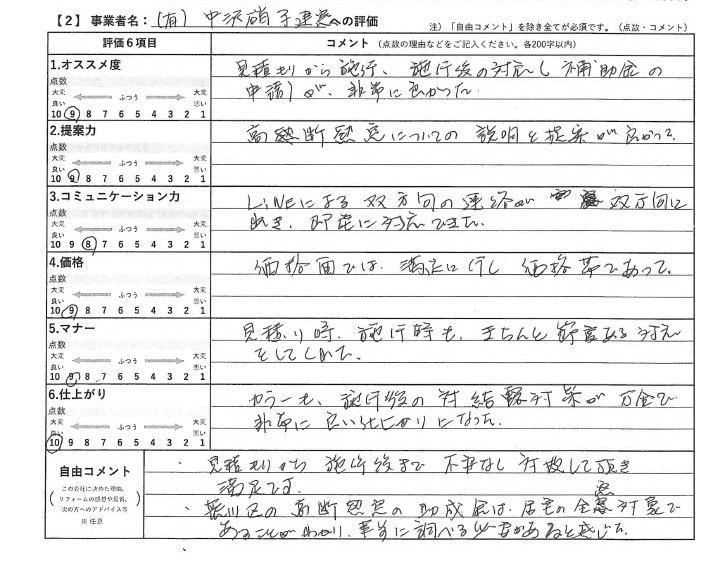 【2】事業者名：(有) 中沢硝子建窓への評価
注）「自由コメント」を除き全てが必須です。（点数・コメント）
評価6項目 コメント （点数の理由などをご記入ください。各200字以内）
1.オススメ度
点数
大変良い ふつう 大変悪い
10 9 8 7 6 5 4 3 2 1
見積もりから施行、施行後の対応し補助金の
申請が、非常に良かった。
2.提案力
点数
大変良い ふつう 大変悪い
10 9 8 7 6 5 4 3 2 1
高断熱窓についての説明と提案が良かった。
3.コミュニケーション力
点数
大変良い ふつう 大変悪い
10 9 8 7 6 5 4 3 2 1
LiNEによる双方向の連絡が 双方向に
でき、即座に対応できた。
4.価格
点数
大変良い ふつう 大変悪い
10 9 8 7 6 5 4 3 2 1
価格面では、満足に行く価格帯であった。
5.マナー
点数
大変良い ふつう 大変悪い
10 9 8 7 6 5 4 3 2 1
見積り時、施行時も、きちんと節度ある対応
をしてくれた。
6.仕上がり
点数
大変良い ふつう 大変悪い
10 9 8 7 6 5 4 3 2 1
カラーも、施行後の対結露対策が万全で
非常に良い仕上がりになった。
自由コメント
（この会社に決めた理由、
リフォームの感想や反省、
次の方へのアドバイス等）
※ 任意
・見積もりから施行後まで 対故して頂き
満足です。
・ 区の高断熱窓の助成金は、居宅の全窓対象で
あることがわかり、事前に調べる必要があると感じた。